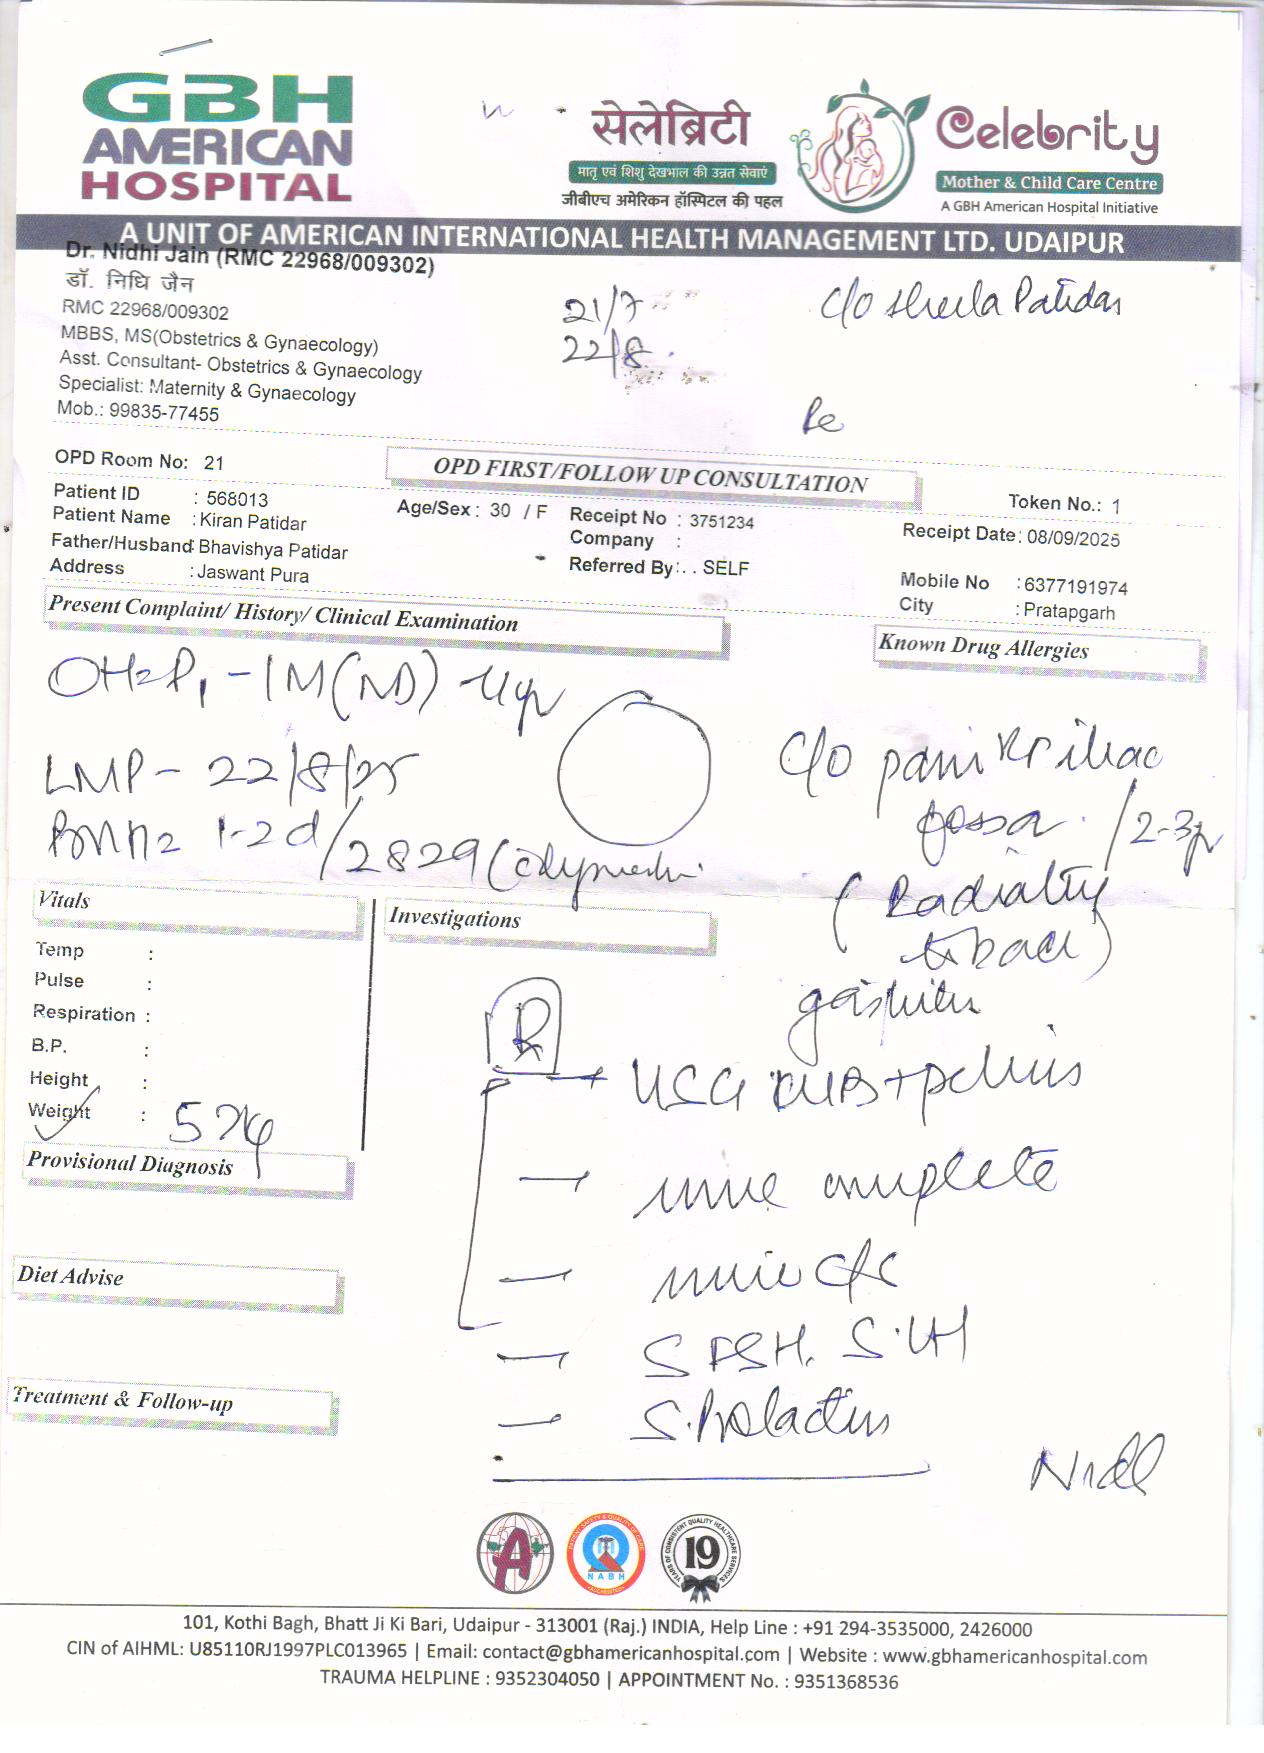 GBH
AMERICAN
HOSPITAL
सेलेब्रिटी
मातृ एवं शिशु देखभाल की उन्नत सेवाएं
जीबीएच अमेरिकन हॉस्पिटल की पहल
Celebrity
Mother & Child Care Centre
A GBH American Hospital Initiative
A UNIT OF AMERICAN INTERNATIONAL HEALTH MANAGEMENT LTD. UDAIPUR
Dr. Nidhi Jain (RMC 22968/009302)
डॉ. निधि जैन
RMC 22968/009302
MBBS, MS(Obstetrics & Gynaecology)
Asst. Consultant- Obstetrics & Gynaecology
Specialist: Maternity & Gynaecology
Mob.: 99835-77455
21/7
22/8
c/o Sheela Patidar
OPD Room No: 21
OPD FIRST/FOLLOW UP CONSULTATION
Token No.: 1
Patient ID : 568013
Patient Name : Kiran Patidar
Father/Husband : Bhavishya Patidar
Address : Jaswant Pura
Age/Sex : 30 / F
Receipt No : 3751234
Company :
Referred By: . . SELF
Receipt Date: 08/09/2025
Mobile No : 6377191974
City : Pratapgarh
Present Complaint/ History/ Clinical Examination
Known Drug Allergies
LMP - 22/8/25
1-2d/2829
c/o pain iliac
fossa . /2-3
gastritis
Vitals
Temp :
Pulse :
Respiration :
B.P. :
Height :
Weight : 57kg
Investigations
R
USG KUB + pelvis
urine complete
urine c/s
S FSH. S.LH
S. Prolactin
Provisional Diagnosis
Diet Advise
Treatment & Follow-up
Nidhi
A
PATIENT SAFETY & QUALITY OF CARE
NABH
ACCREDITED
YEARS OF CONSISTENT QUALITY HEALTHCARE SERVICES
19
101, Kothi Bagh, Bhatt Ji Ki Bari, Udaipur - 313001 (Raj.) INDIA, Help Line : +91 294-3535000, 2426000
CIN of AIHML: U85110RJ1997PLC013965 | Email: contact@gbhamericanhospital.com | Website : www.gbhamericanhospital.com
TRAUMA HELPLINE : 9352304050 | APPOINTMENT No. : 9351368536